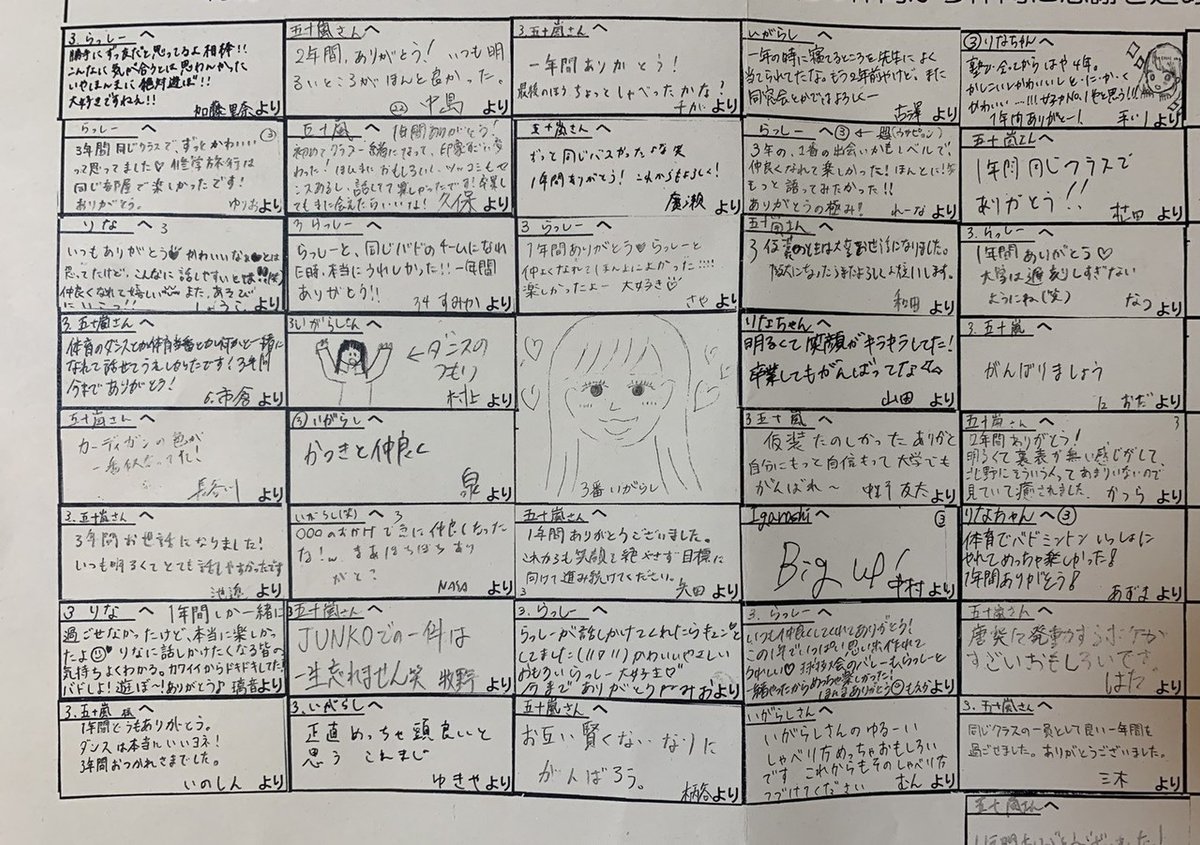 3.らっしーへ
勝手にずっ友だと思ってるよ相棒!!
こんなに気が合うとは思わんかった
いやほんまに絶対遊ぼ!!
大好きですねん!!
加藤里奈より
五十嵐さんへ
2年間、ありがとう! いつも明
るいところがほんと良かった。
㉒ 中島より
3.五十嵐さんへ
一年間ありがとう!
最後のほうちょっとしゃべったかな?
より
いがらしへ
一年の時に寝るところを先生によく
当てられてたな。もう2年前やけど、また
同窓会とかではよろしくー
古澤より
③りなちゃんへ
塾で会ってからはや4年。
1年間ありがとー!
より
らっしーへ ③
3年間同じクラスで、ずっとかわいい
って思ってました♡修学旅行は
同じ部屋で楽しかったです!
ありがとう。
ゆりおより
五十嵐へ 1年間ありがとう!
初めてクラス一緒になって、印象すごい変
わった!ほんまにおもしろいし、ツッコミもセ
ンスあるし、話してて楽しかったです!卒業し
てもまた会えたらいいな! 久保より
五十嵐さんへ
ずっと同じバスだったよな笑
1年間ありがとう!これからもよろしく!
廣瀬より
らっしーへ③
3年の、1番の出会いかもレベルで、
仲良くなれて楽しかった!ほんとに!
もっと語ってみたかった!!
ありがとうの極み!
れーなより
五十嵐さんへ
1年間同じクラスで
ありがとう!!
より
りなへ 3
いつもありがとう♥かわいいなぁとは
思ってたけど、こんなに話しやすいとは!!(笑)
仲良くなれて嬉しい また、あそび
にいこっ!! より
3 らっしーへ
らっしーと、同じバドのチームになれ
た時、本当にうれしかった!!一年間
ありがとう!!
34 すみかより
3 らっしーへ
1年間ありがとう♡らっしーと
仲よくなれてほんとによかった
楽しかったよー 大好き♡
さやより
五十嵐さんへ
3 仮装の時は大変お世話になりました。
和田より
3.らっしーへ
1年間ありがとう♡
大学は遅刻しすぎない
ようにね(笑)
なつより
3.五十嵐さんへ
体育のダンスとか体育当番とか何かと一緒に
なれて話せてうれしかったです!3年間
今までありがとう!
6.市倉より
3 いがらしさんへ
←ダンスの
つもり
村上より
3番いがらし
りなちゃんへ
明るくて笑顔がキラキラしてた!
卒業してもがんばってな
山田より
3.五十嵐へ
がんばりましょう
12 おだより
五十嵐さんへ
カーディガンの色が
一番似合ってた!
長谷川より
③いがらしへ
かつきと仲良く
泉より
3 五十嵐へ
仮装たのしかった ありがと
自分にもっと自信もって大学でも
がんばれ〜
友太より
五十嵐さんへ 3
2年間ありがとう!
明るくて裏表が無い感じがして
北野にそういう人ってあまりいないので
見ていて癒されました。 かつらより
3.五十嵐さんへ
3年間お世話になりました!
いつも明るくてとても話しやすかったです
より
いがらし(笑)へ 3
○○○のおかげで急に仲良くなった
な!~ まあぼちぼちあり
がと?
NASAより
五十嵐さんへ
1年間ありがとうございました。
これからも笑顔を絶やさず目標に
向けて進み続けてください。
3 矢田より
Igarashiへ ③
Big up!
中村より
りなちゃんへ③
体育でバドミントンいっしょに
やれてめっちゃ楽しかった!
1年間ありがとう!
あずまより
3 りなへ 1年間しか一緒に
過ごせなかったけど、本当に楽しかっ
たよ りなに話しかけたくなる皆の
気持ちよくわかる。カワイイからドキドキしてた!
バドしよ!遊ぼ〜!ありがとう♪ 璃音より
3五十嵐さんへ
JUNKOでの一件は
一生忘れません笑 牧野より
3.らっしーへ
らっしーが話しかけてくれたらキュンと
してました(//▽//)かわいいやさしい
おもろいらっしー大好き♡
今までありがとう みおより
3.らっしーへ
いつも仲良くしてくれてありがとう!
この1年でいっぱい思い出作れて
うれしい♡球技大会のバレーもらっしーと
一緒やったからめっちゃ楽しかった!
ほんまありがとう もえかより
五十嵐さんへ
唐突に発動するボケが
すごいおもしろいです。
はだより
3.五十嵐へ
1年間どうもありがとう。
ダンスは本当にいいヨネ!
3年間おつかれさまでした。
いのしんより
3.いがらしへ
正直めっちゃ頭良いと
思う これまじ
ゆきやより
五十嵐さんへ
お互い賢くないなりに
がんばろう。
柄谷より
いがらしさんへ
いがらしさんのゆるーい
しゃべり方めっちゃおもしろい
です これからもそのしゃべり方
つづけてください
むんより
3.五十嵐さんへ
同じクラスの一員として良い一年間を
過ごせました。ありがとうございました。
三木より
五十嵐さんへ